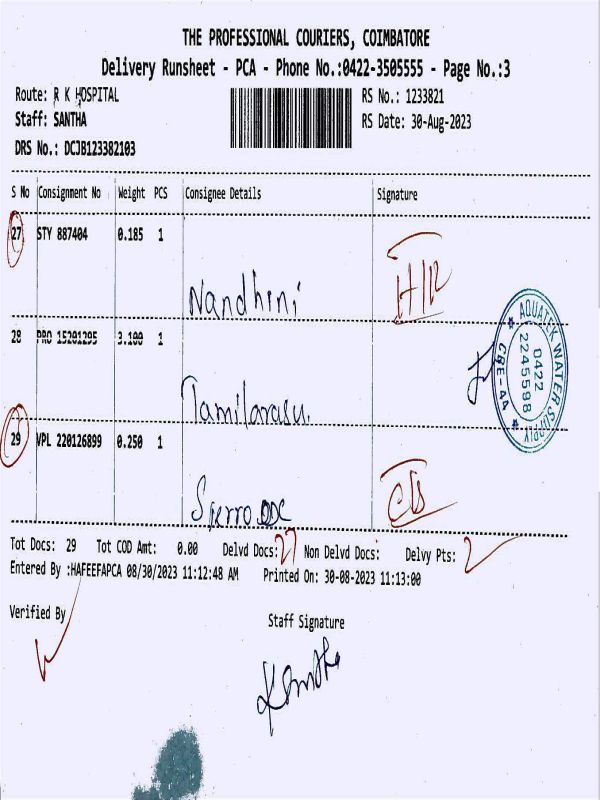 THE PROFESSIONAL COURIERS, COIMBATORE
Delivery Runsheet - PCA - Phone No.:0422-3505555 - Page No.:3
Route: R K HOSPITAL
RS No.: 1233821
Staff: SANTHA
RS Date: 30-Aug-2023
DRS No.: DCJB123382103
S No Consignment No Weight PCS Consignee Details Signature
27 STY 887404 0.185 1
Nandhini
28 PRO 15201295 3.100 1
Tamilarasu.
AQUATEK WATER SUPPLY
0422
2245598
CBE-44
29 VPL 220126899 0.250 1
Tot Docs: 29 Tot COD Amt: 0.00 Delvd Docs: 27 Non Delvd Docs: Delvy Pts: 2
Entered By :HAFEEFAPCA 08/30/2023 11:12:48 AM Printed On: 30-08-2023 11:13:00
Verified By
Staff Signature